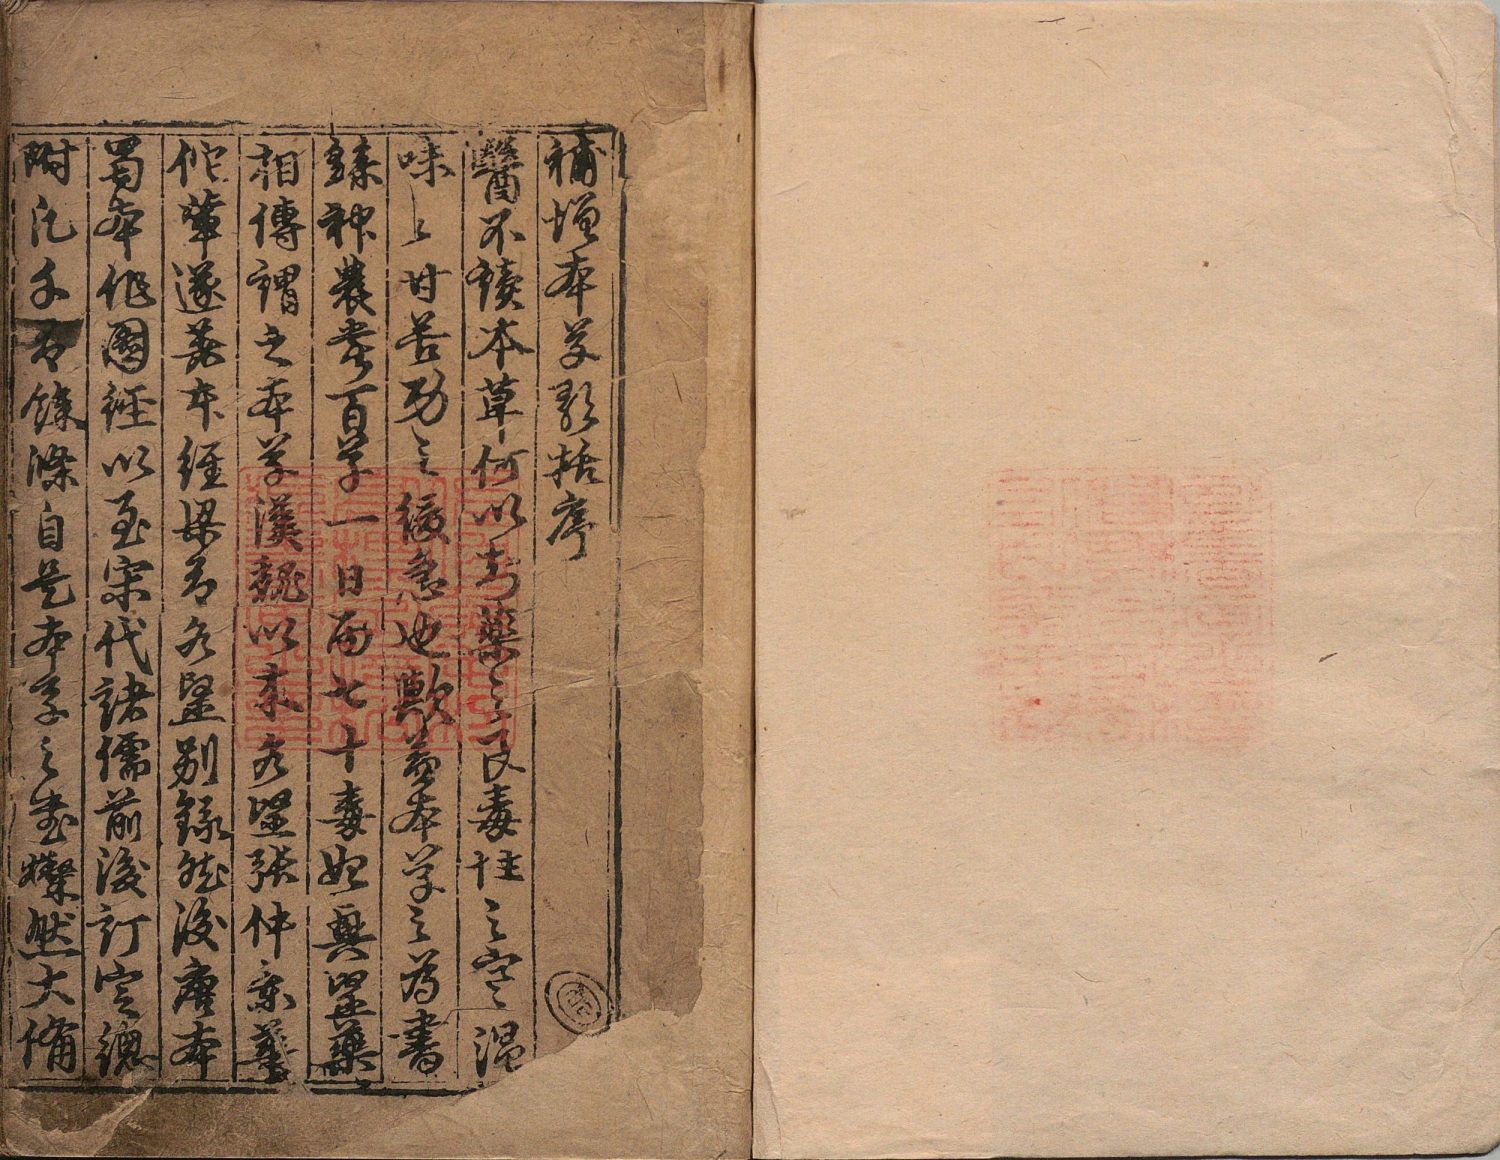 補增本草歌括序
醫不讀本草何以知藥之良毒性之寒溫
味之甘苦功之緩急也歟蓋本草之為書
錄神農嘗百草一日而七十毒始興醫藥
相傳謂之本草漢魏以來名醫張仲景華
佗輩遂菴本經梁有名醫別錄然後唐本
蜀本作圖經以至宋代諸儒前後訂定總
附凡千有餘條自是本草之書燦然大備